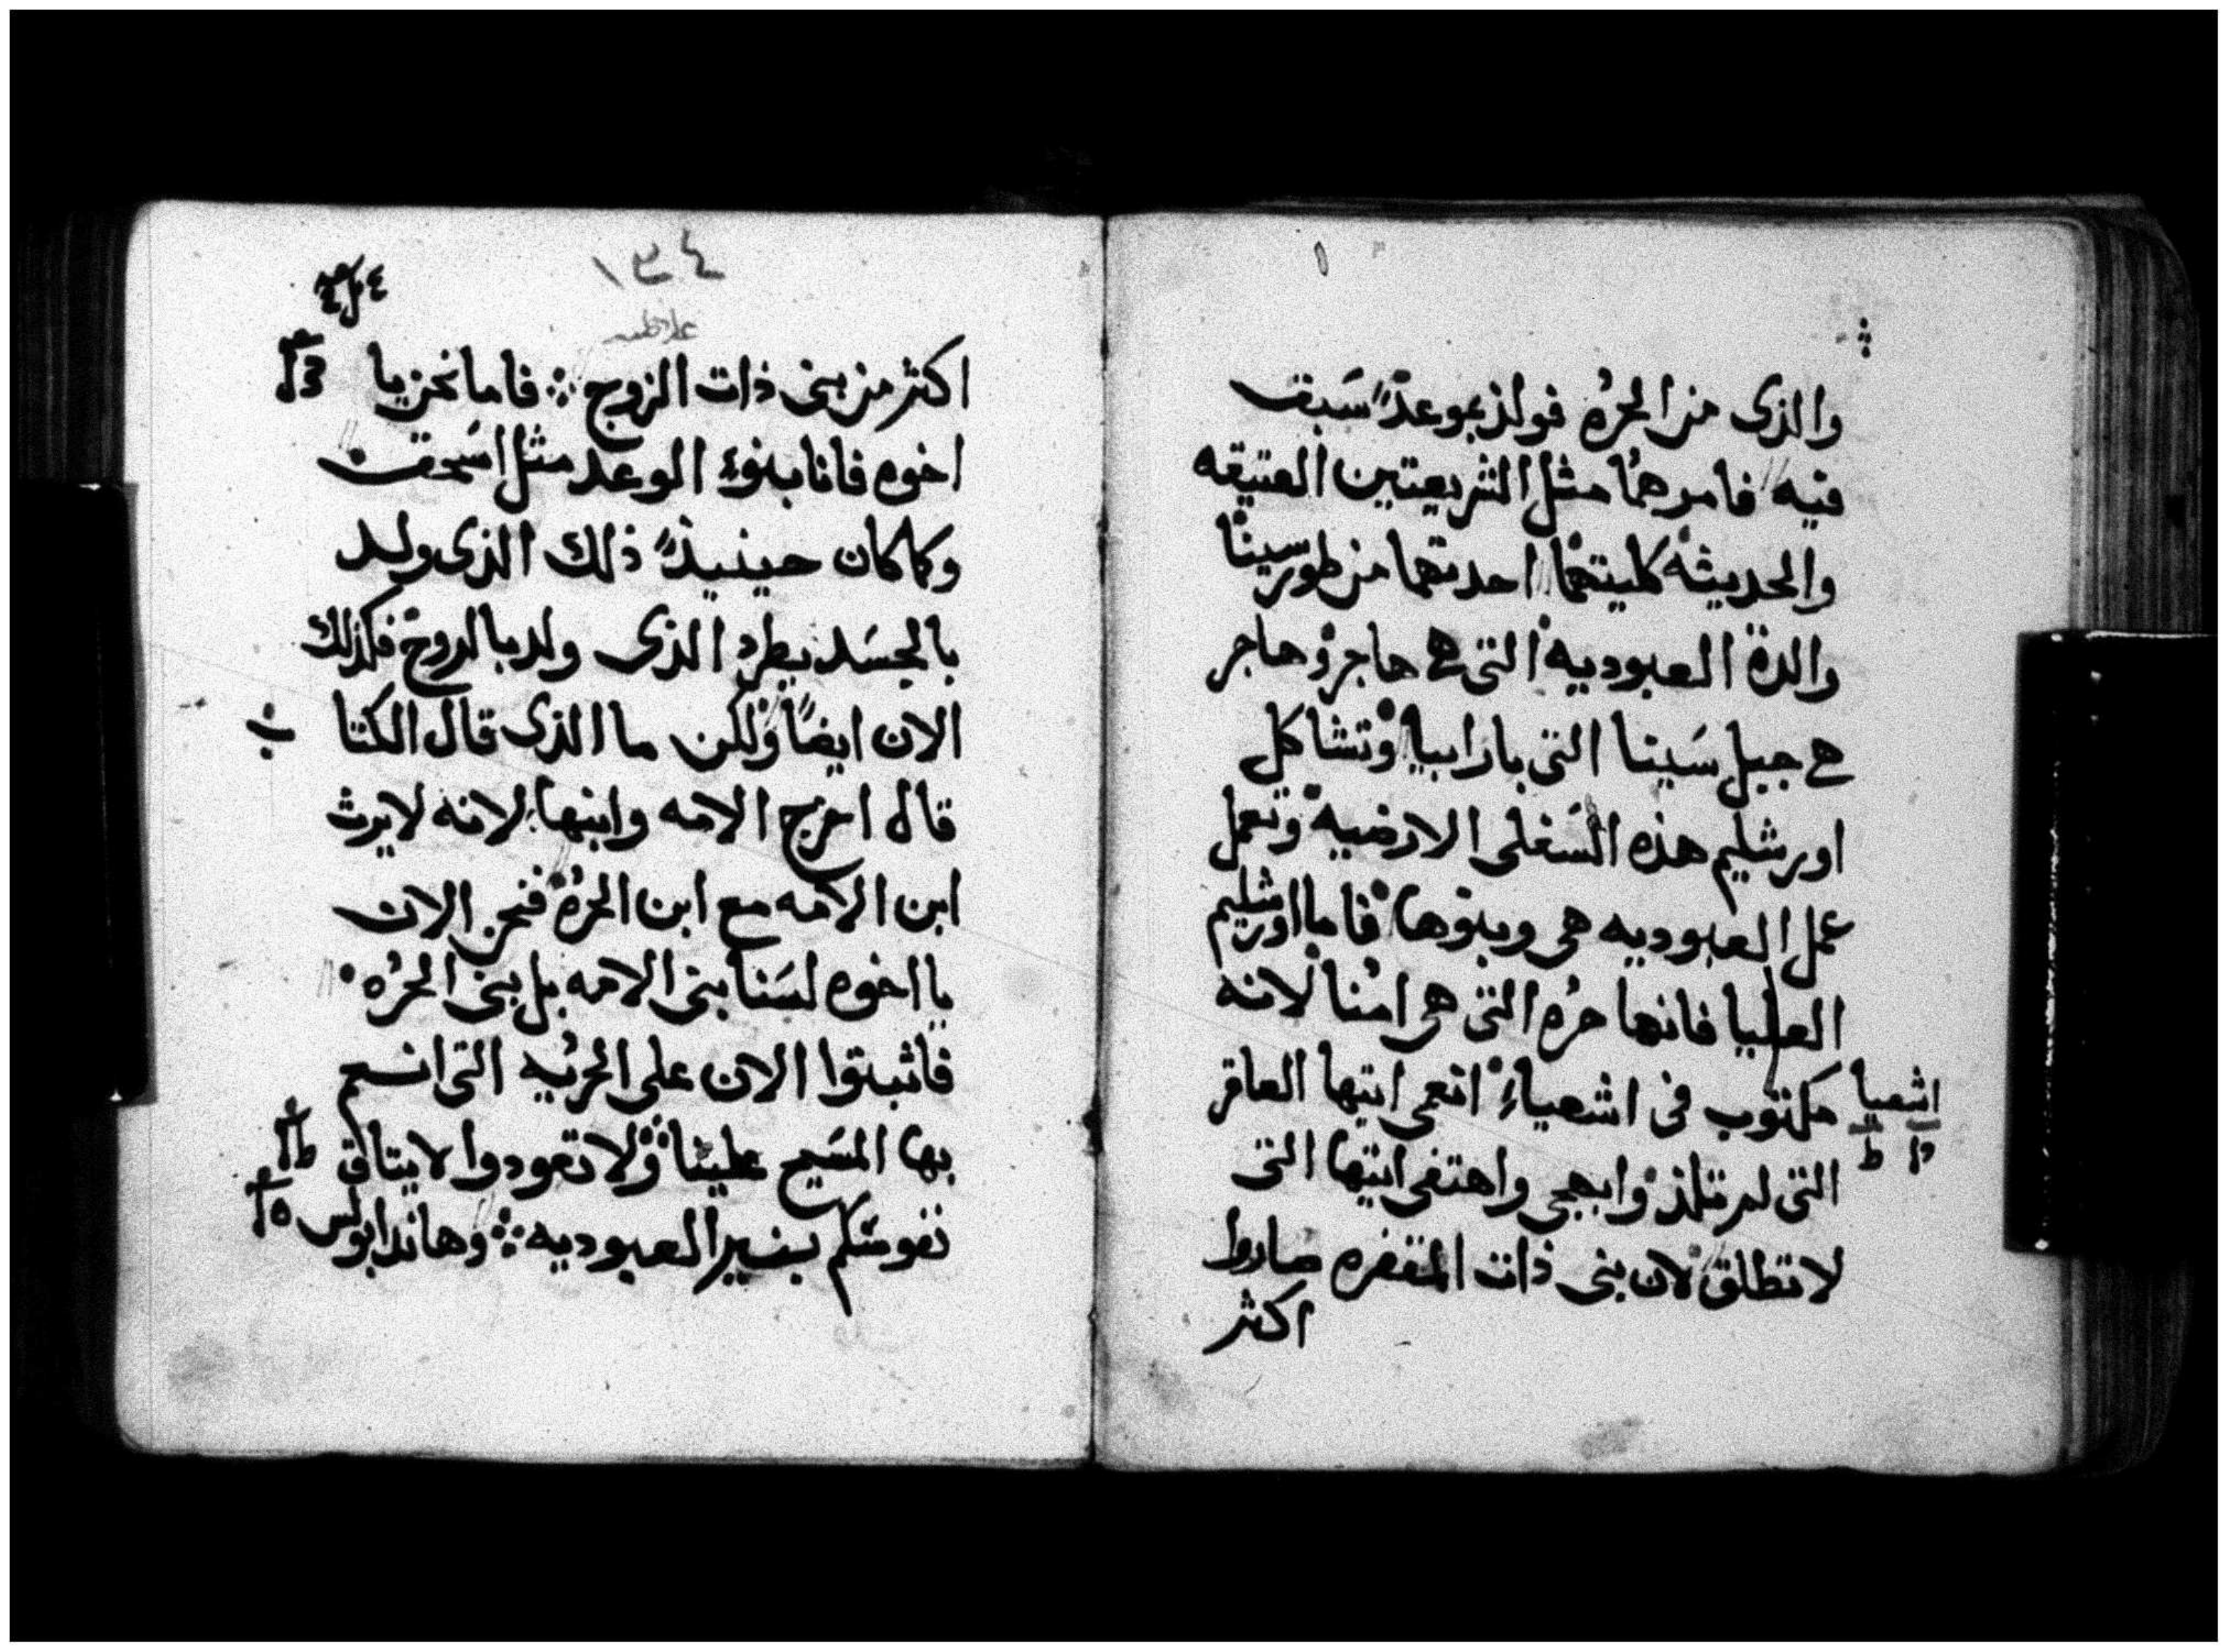 والذى من الحرُه فولذ بموعدً سَبقت
فيه فامرهما مثل الشريعتين العتيقه
والحديثه كليتهما احدتهما من طورسينا
والدة العبوديه التى هى هاجر وهاجر
هى جبل سَينا التى بارابيا وتشاكل
اورشليم هذه السَفلى الارضيه وتعمل
عمل العبوديه هى وبنوها فاما اورشليم
العليا فانها حرُه التى هى امُنا لانه
مكتوب فى اشعياءِ انعمى ايتها العاقر
اشعيا
التى لم تلذ وابهجى واهتفى ايتها التى
لا تطلق لان بنى ذات المقفره صاروا
اكثر
١٣٤
اكثر من بنى ذات الزوج فاما نحن يا
اخوه فانا بنوء الوعد مثل اسَحق
وكما كان حينيذً ذلك الذى ولد
بالجسَد يطرد الذى ولد بالروح فكذلك
الان ايضاً ولكن ما الذى قال الكتا
ب
قال اخرج الامه وابنها لانه لا يرث
ابن الامه مع ابن الحرُه فنحن الان
يا اخوه لسَنا بنى الامه بل بنى الحرُه
فاثبتوا الان على الحريُه التى انسم
بها المسَيح علينا ولا تعودوا لا يتاق
نفوسَكم بنير العبوديه وهاندا بولس